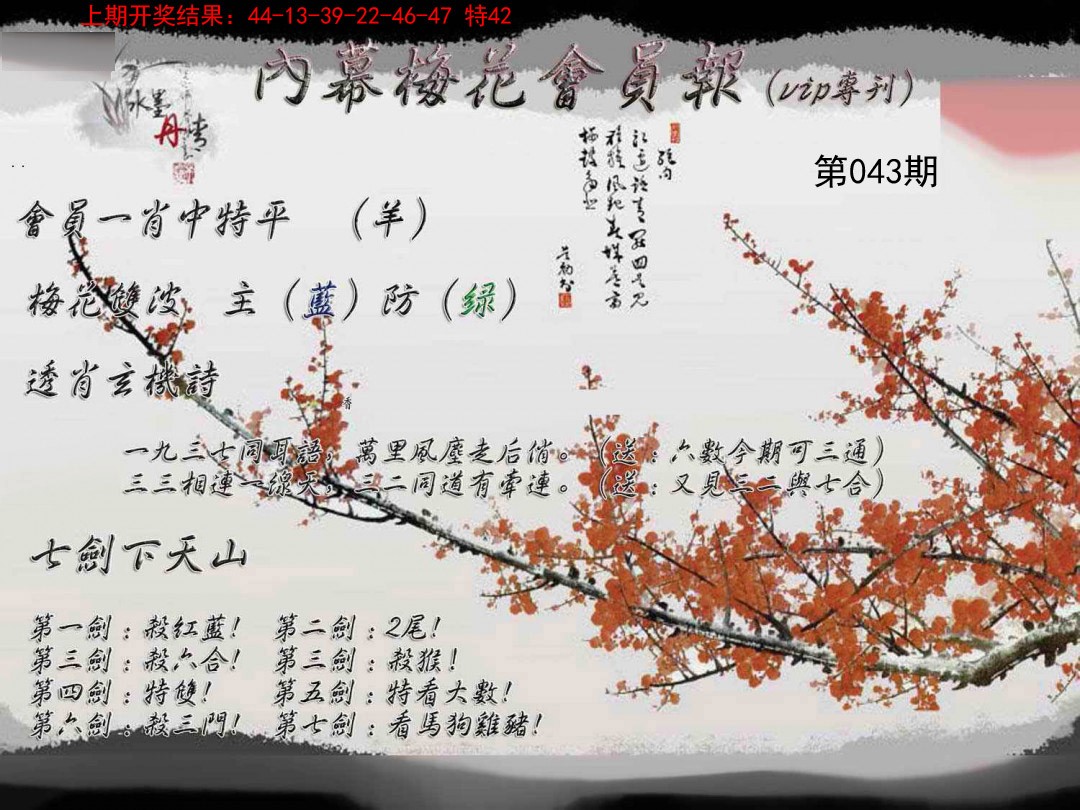 上期开奖结果：44-13-39-22-46-47 特42
內幕梅花會員報（vip專刊）
水墨
丹情
第043期
會員一肖中特平 （羊）
梅花雙波 主（藍）防（绿）
透肖玄機詩
香
一九三七同耳語，萬里風塵走后俏。（送：六數今期可三通）
三三相連一線天，三二同道有牽連。（送：又見三二與七合）
七劍下天山
第一劍：殺红藍！ 第二劍：2尾！
第三劍：殺六合！ 第三劍：殺猴！
第四劍：特雙！ 第五劍：特看大數！
第六劍：殺三門！ 第七劍：看馬狗雞豬！